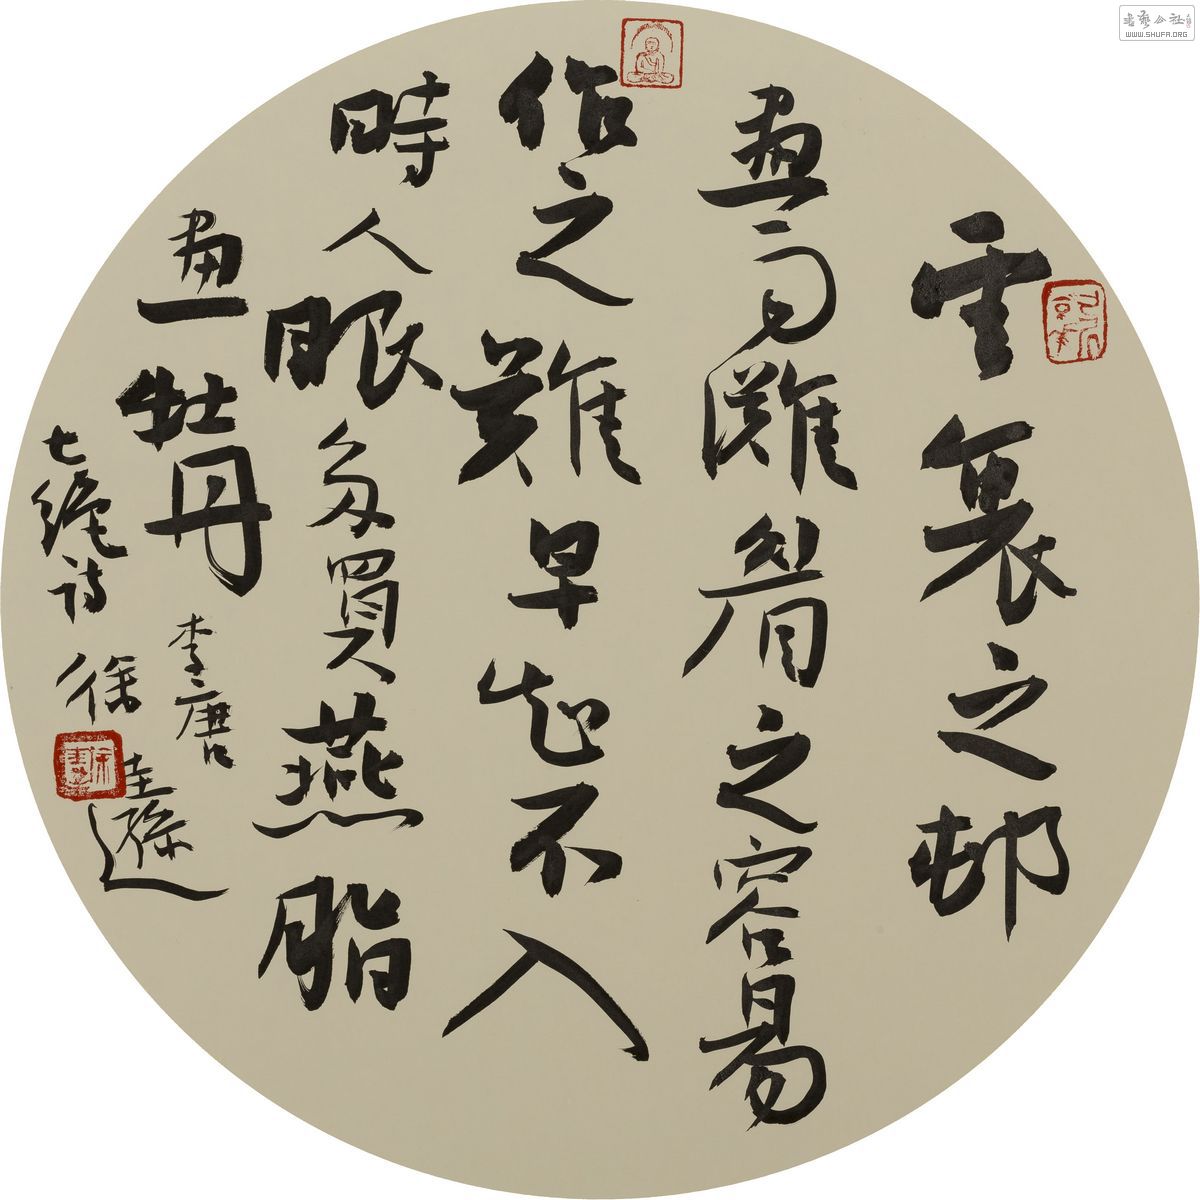 雲裏之邨
畫雨灘看之容易
作之難早知不入
時人眼多買燕脂
畫牡丹李唐
七絕詩徐圭遜
書藝公社
WWW.SHUFA.ORG